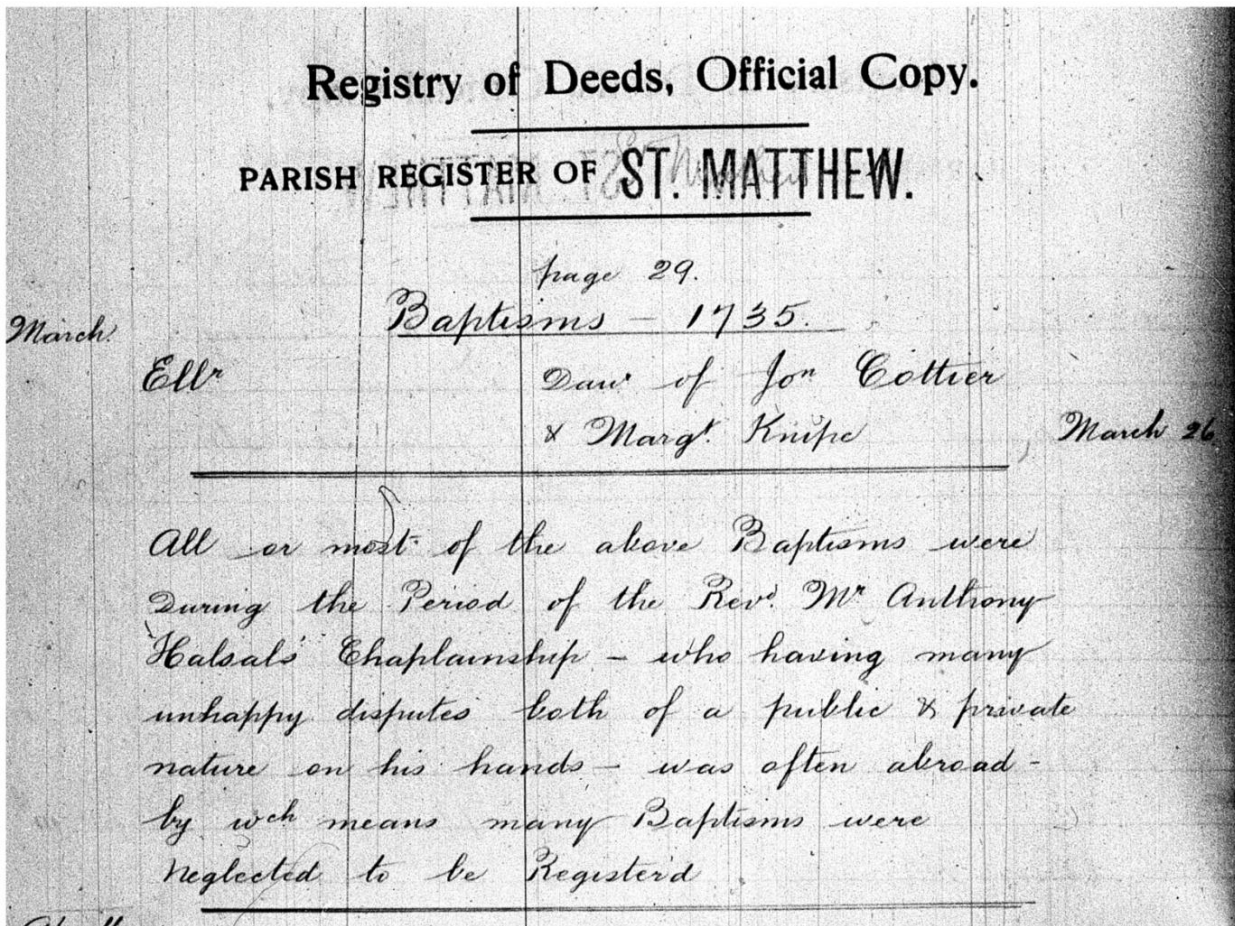 Registry of Deeds, Official Copy.
PARISH REGISTER OF ST. MATTHEW.
page 29.
Baptisms – 1735.
March.
Ellr Daur of Jon Cottier
& Margt. Knipe March 26
All or most of the above Baptisms were
During the Period of the Revd. Mr Anthony
Halsals Chaplainship – who having many
unhappy disputes both of a public & private
nature on his hands – was often abroad –
by wch means many Baptisms were
Neglected to be Register'd